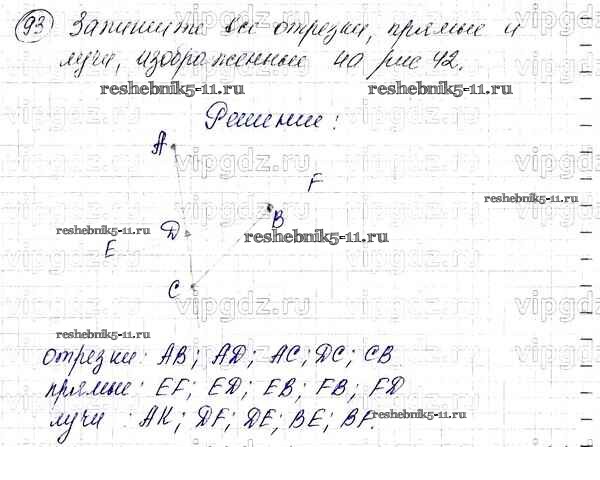 93 Запишите все отрезки, прямые и
лучи, изображенные на рис 42.
reshebnik5-11.ru
reshebnik5-11.ru
Решение:
vipgdz.ru
A
F
reshebnik5-11.ru
B
D
reshebnik5-11.ru
E
C
reshebnik5-11.ru
отрезки: AB; AD; AC; DC; CB
прямые: EF; ED; EB; FB; FD
лучи: AK; DF; DE; BE; BF.
reshebnik5-11.ru